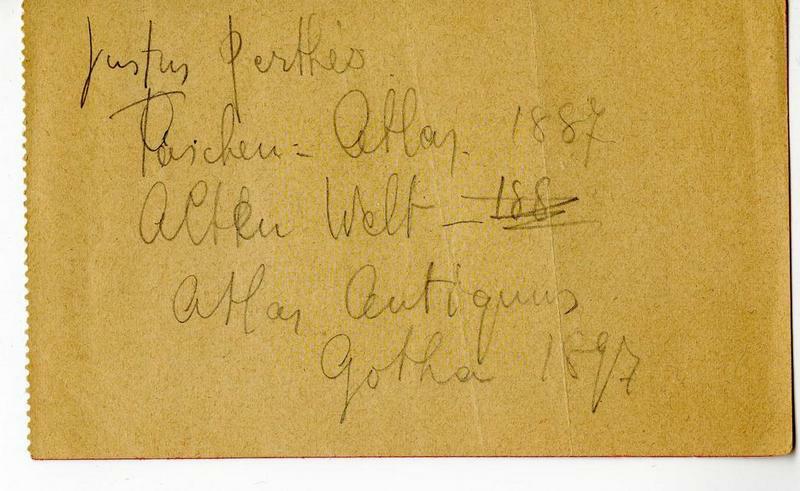 Justus Perthes
Taschen = Atlas. 1887
Alten Welt — 188
Atlas Antiquus
Gotha 1897